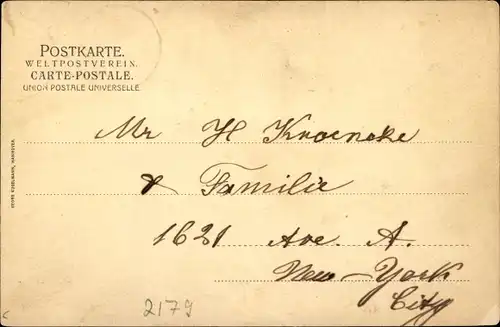 POSTKARTE.
WELTPOSTVEREIN.
CARTE-POSTALE.
UNION POSTALE UNIVERSELLE.
Mr H Kroencke
& Familie
1621 Ave. A.
New-York
City
2179